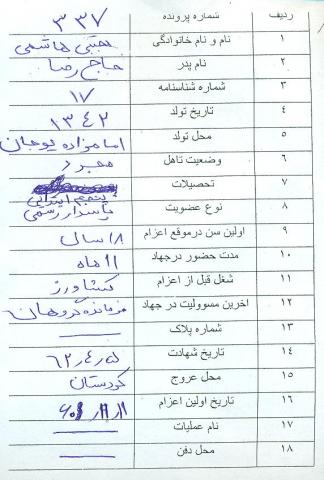 ردیف شماره پرونده ٣٣٧
١ نام و نام خانوادگی مجتبی هاشمی
٢ نام پدر حاج رضا
٣ شماره شناسنامه ١٧
٤ تاریخ تولد ١٣٤٢
٥ محل تولد امامزاده یوجان
٦ وضعیت تاهل مجرد
٧ تحصیلات پنجم ابتدایی
٨ نوع عضویت پاسدار رسمی
٩ اولین سن درموقع اعزام ١٨ سال
١٠ مدت حضور درجهاد ١١ ماه
١١ شغل قبل از اعزام کشاورز
١٢ اخرین مسوولیت در جهاد فرمانده گروهان
١٣ شماره پلاک
١٤ تاریخ شهادت
١٥ محل عروج کردستان
١٦ تاریخ اولین اعزام
١٧ نام عملیات
١٨ محل دفن